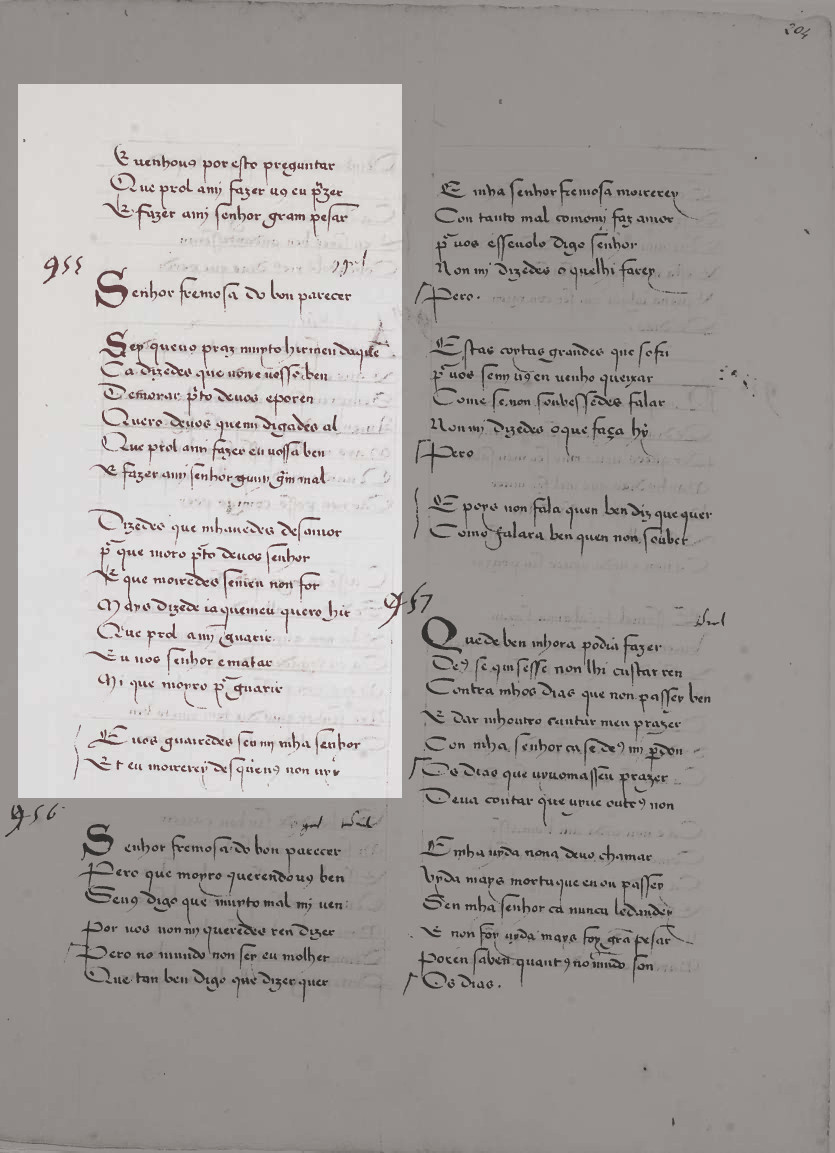 204
E uenhouꝯ por esto preguntar
Que prol ami fazer uꝯ eu p̃zer
E fazer ami senhor gram pesar
955
Senhor fremosa do bon parecer
Sey queuꝯ praz muyto hirmeu daquẽ
Ca dizedes que non e uosso ben
Demorar p̃to deuos eporen
Quero deuos quemi digades al
Que prol ami fazer eu uossa ben
E fazer ami senhor gram mal
Dizedes que mhauedes desamor
p̃ que moro p̃to deuos senhor
E que moiredes semeu non for
Mays dizede ia quemeu quero hir
Que prol ami guarir
Eu uos senhor ematar
Mi que moyro p̃ guarir
E uos guairedes sen mi mha senhor
Et eu moirerey des queuꝯ non uyr
956
Senhor fremosa do bon parecer
Pero que moyro querendouꝯ ben
Seuꝯ digo que muyto mal mi uen
Por uos non mi queredes ren dizer
Pero no mundo non sey eu molher
Que tan ben digo que dizer quer
E mha senhor fremosa moirerey
Con tanto mal comomi faz amor
p̃ uos esseuolo digo senhor
Non mi dizedes o quelhi farey
Pero.
Estas coytas grandes que sofri
p̃ uos senm uꝯ en uenho queixar
Come se non soubessedes falar
Non mi dizedes o que faça hy
Pero
E poys non fala quen ben diz que quer
Como falara ben quen non souber
957
Quede ben mhora podia fazer
Deꝯ se quisesse non lhi custar ren
Contra mhos dias que non passey ben
E dar mhoutro cantar meu prazer
Con mha senhor ca se deꝯ mi p̃don
Os dias que uyuomassen prazer
Deua contar que uyue outrꝯ non
E mha uyda nona deuo chamar
Vyda mays morta que en ou passey
Sen mha senhor ca nunca ledandey
E non foy uyda mays foy grã pesar
Poren saben quantꝯ no mundo son
Os dias.